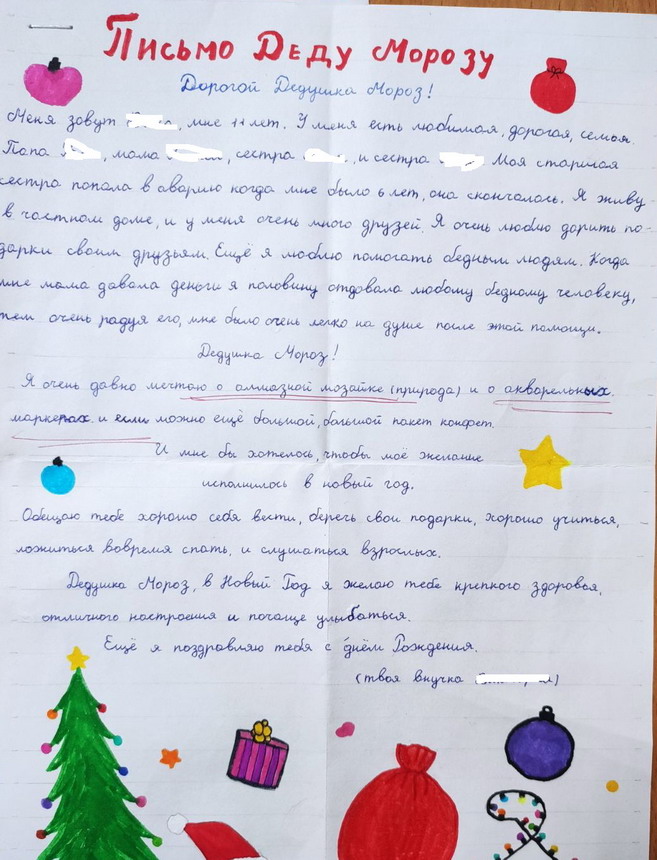 Письмо Деду Морозу
Дорогой Дедушка Мороз!
Меня зовут , мне 11 лет. У меня есть любимая, дорогая, семья.
Папа , мама , сестра , и сестра Моя старшая
сестра попала в аварию когда мне было 6 лет, она скончалось. Я живу
в частном доме, и у меня очень много друзей. Я очень люблю дарить по-
дарки своим друзьям. Ещё я люблю помогать бедным людям. Когда
мне мама давала деньги я половину отдовала любому бедному человеку,
тем очень радуя его, мне было очень легко на душе после этой помощи.
Дедушка Мороз!
Я очень давно мечтаю о алмазной мозайке (природа) и о акварельных
маркерах и если можно ещё большой, большой пакет конфет.
И мне бы хотелось, чтобы моё желание
исполнилось в новый год.
Обещаю тебе хорошо себя вести, беречь свои подарки, хорошо учиться,
ложиться вовремя спать, и слушаться взрослых.
Дедушка Мороз, в Новый Год я желаю тебе крепкого здоровья,
отличного настроения и почаще улыбаться.
Ещё я поздравляю тебя с днём Рождения.
(твоя внучка )